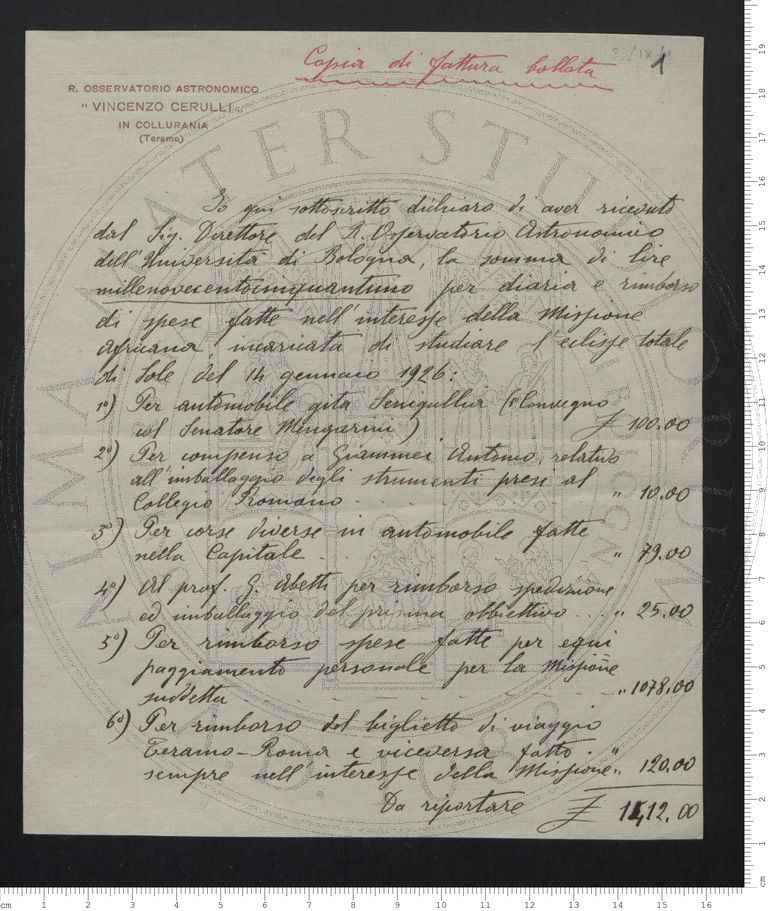 Copia di fattura bollata
1
R. OSSERVATORIO ASTRONOMICO
"VINCENZO CERULLI"
IN COLLURANIA
(Teramo)
Io qui sottoscritto dichiaro di aver ricevuto
dal Sig. Direttore del R. Osservatorio Astronomico
dell'Università di Bologna, la somma di lire
millenovecentocinquantuno per diaria e rimborso
di spese fatte nell'interesse della Missione
Africana, incaricata di studiare l'eclisse totale
di Sole del 14 gennaio 1926:
1°) Per automobile gita Senigallia (1° Convegno
col Senatore Mengarini) £ 100.00
2°) Per compenso a Giammei Antonio, relativo
all'imballaggio degli strumenti presi al
Collegio Romano . . . . " 10.00
3°) Per corse diverse in automobile fatte
nella Capitale . . . . " 79.00
4°) Al prof. G. Abetti per rimborso spedizione
ed imballaggio del prisma obbiettivo . . . " 25.00
5°) Per rimborso spese fatte per equi
paggiamento personale per la Missione
suddetta . . . . " 1078.00
6°) Per rimborso del biglietto di viaggio
Teramo-Roma e viceversa fatto . "
sempre nell'interesse della Missione " 120.00
Da riportare £ 1412.00
ALMA MATER STUDIORUM
A.D. 1088